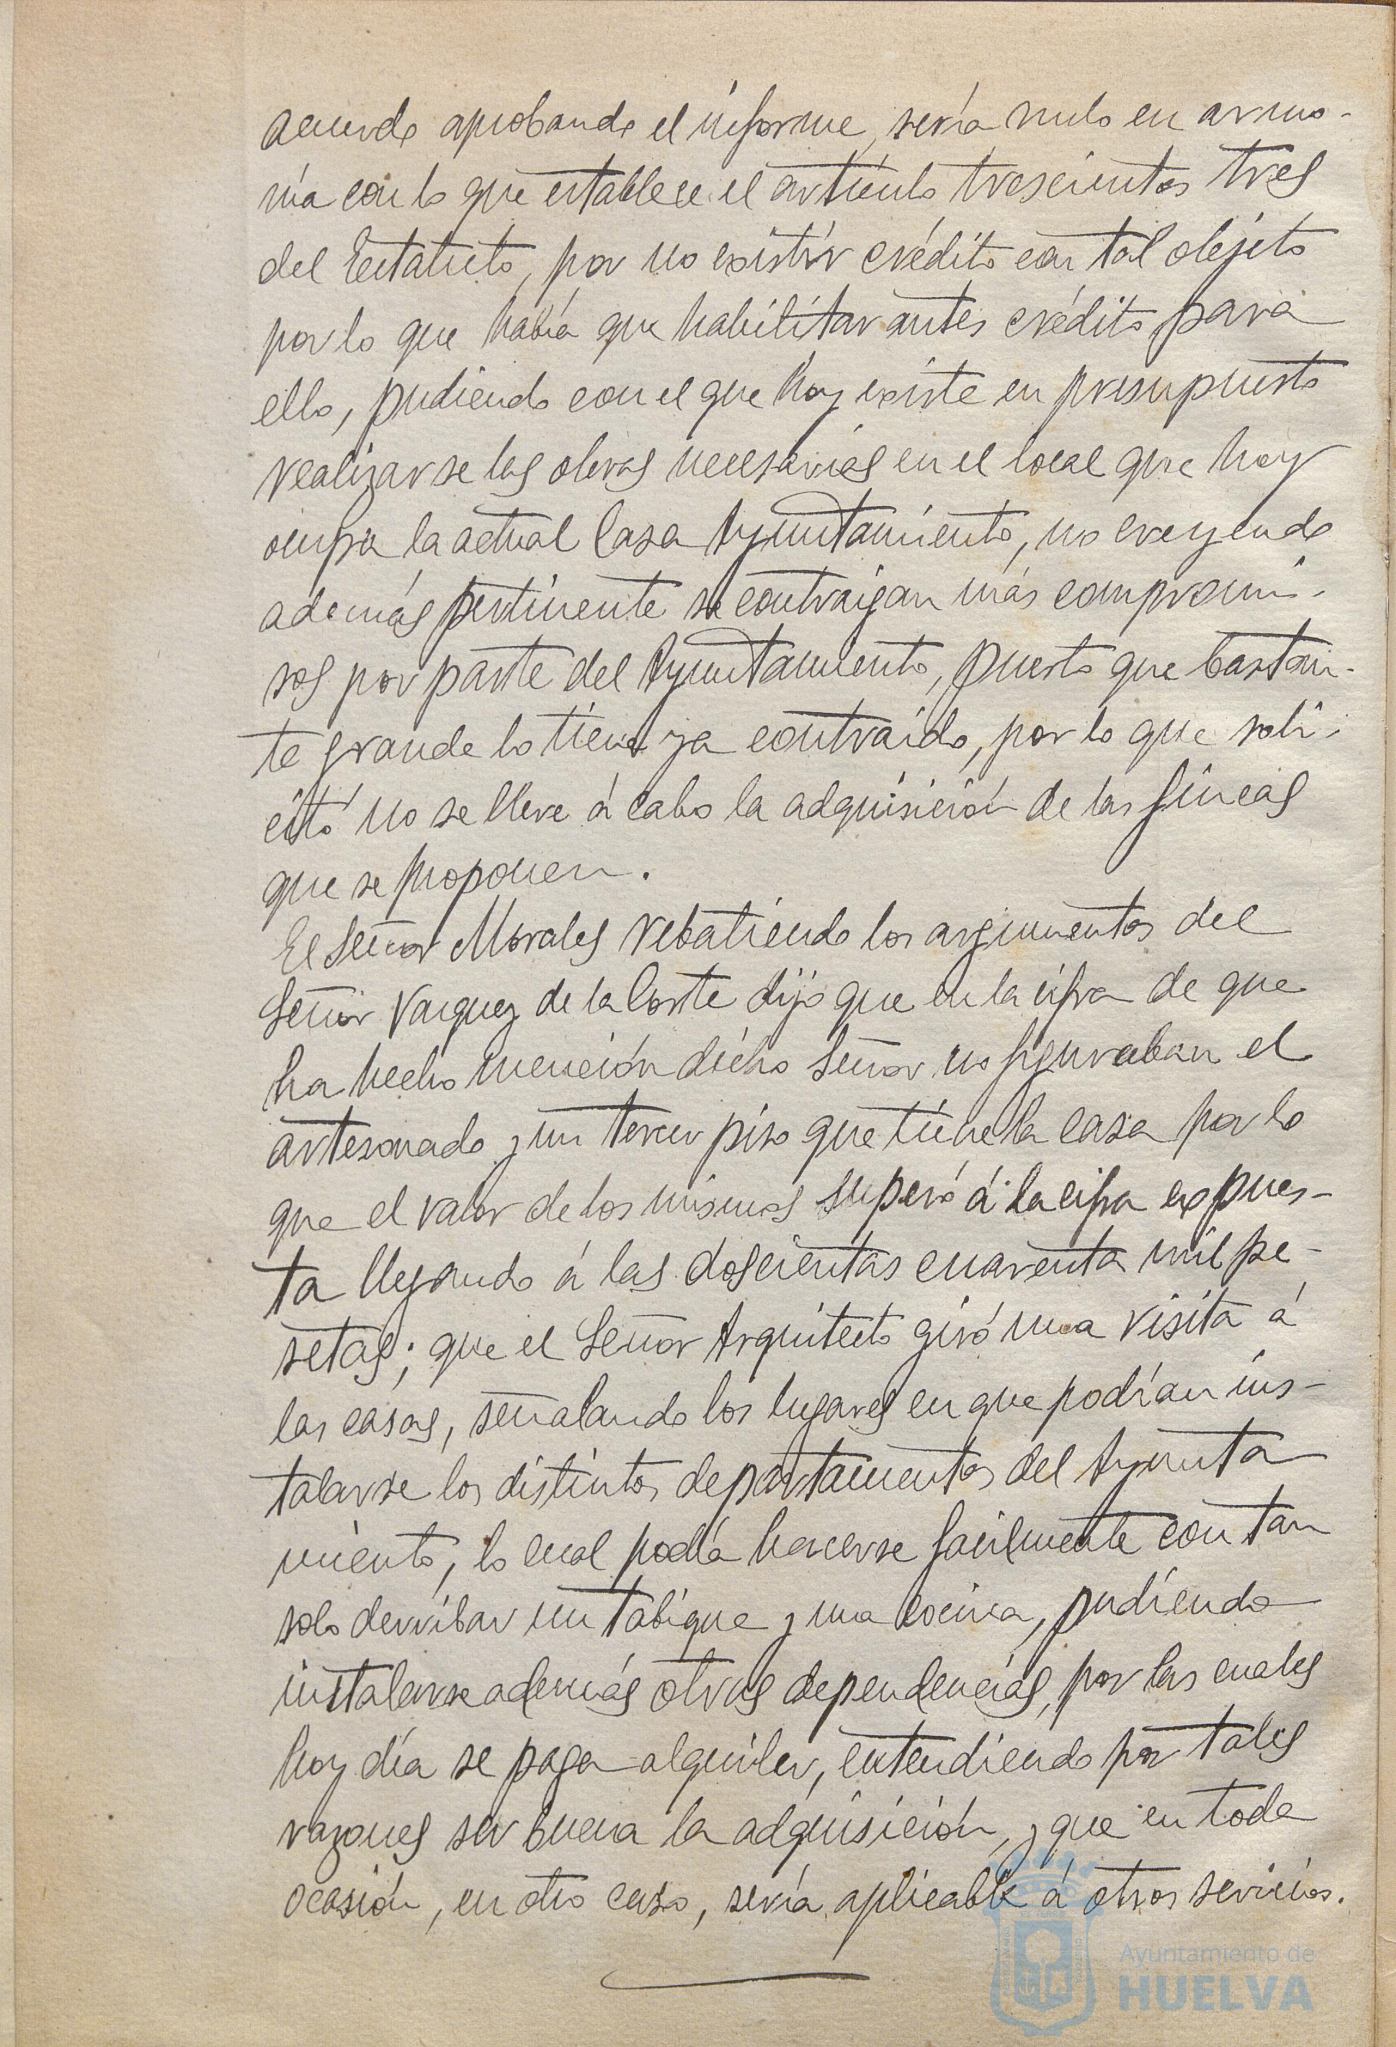 acuerdo aprobando el informe, sería nulo en armo-
nía con lo que establece el artículo trescientos tres
del Estatuto, por no existir crédito con tal objeto
por lo que había que habilitar antes crédito para
ello, pudiendo con el que hoy existe en presupuesto
realizarse las obras necesarias en el local que hoy
ocupa la actual Casa Ayuntamiento, no creyendo
además pertinente se contraigan más compromi-
sos por parte del Ayuntamiento, puesto que bastan-
te grande lo tiene ya contraido, por lo que soli-
citó no se lleve á cabo la adquisición de las fincas
que se proponen.
El Señor Morales rebatiendo los argumentos del
Señor Vazquez de la Corte dijo que en la cifra de que
ha hecho mención dicho Señor no figuraban el
artesonado y un tercer piso que tiene la casa por lo
que el valor de los mismos superó á la cifra expues-
ta llegando á las doscientas cuarenta mil pe-
setas; que el Señor Arquitecto giró una visita á
las casas, señalando los lugares en que podían ins-
talarse los distintos departamentos del Ayunta
miento, lo cual podía hacerse facilmente con tan
solo derribar un tabique y una cocina, pudiendo
instalarse además otras dependencias, por las cuales
hoy día se paga alquiler, entendiendo por tales
razones ser buena la adquisición, y que en toda
ocasión, en otro caso, sería aplicable á otros servicios.
Ayuntamiento de
HUELVA